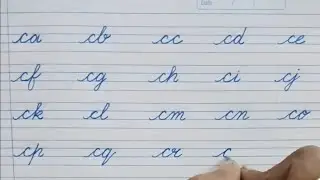 Date
ca cb cc cd ce
cf cg ch ci cj
ck cl cm cn co
cp cq cr c